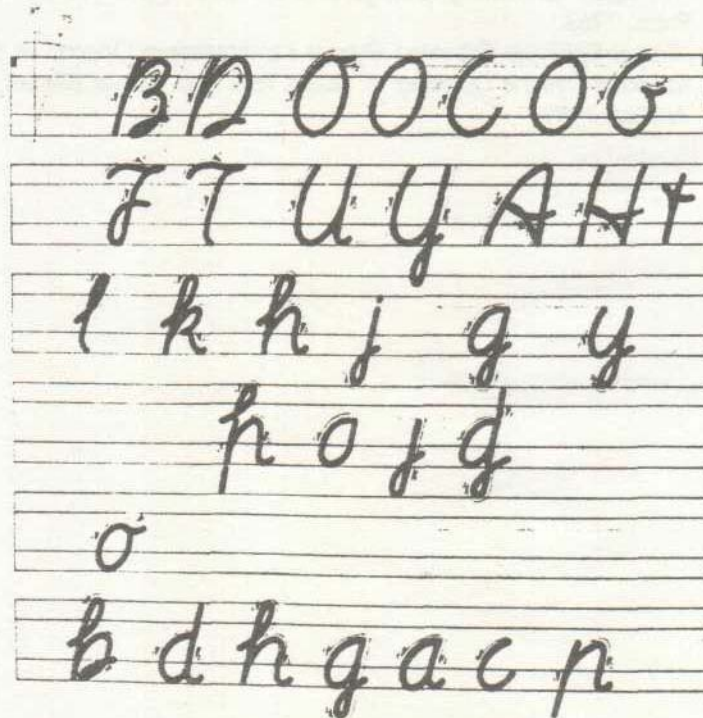 B D O O C O G
J T U Y A H t
l k h j g y
p o j g
o
b d h g a c p